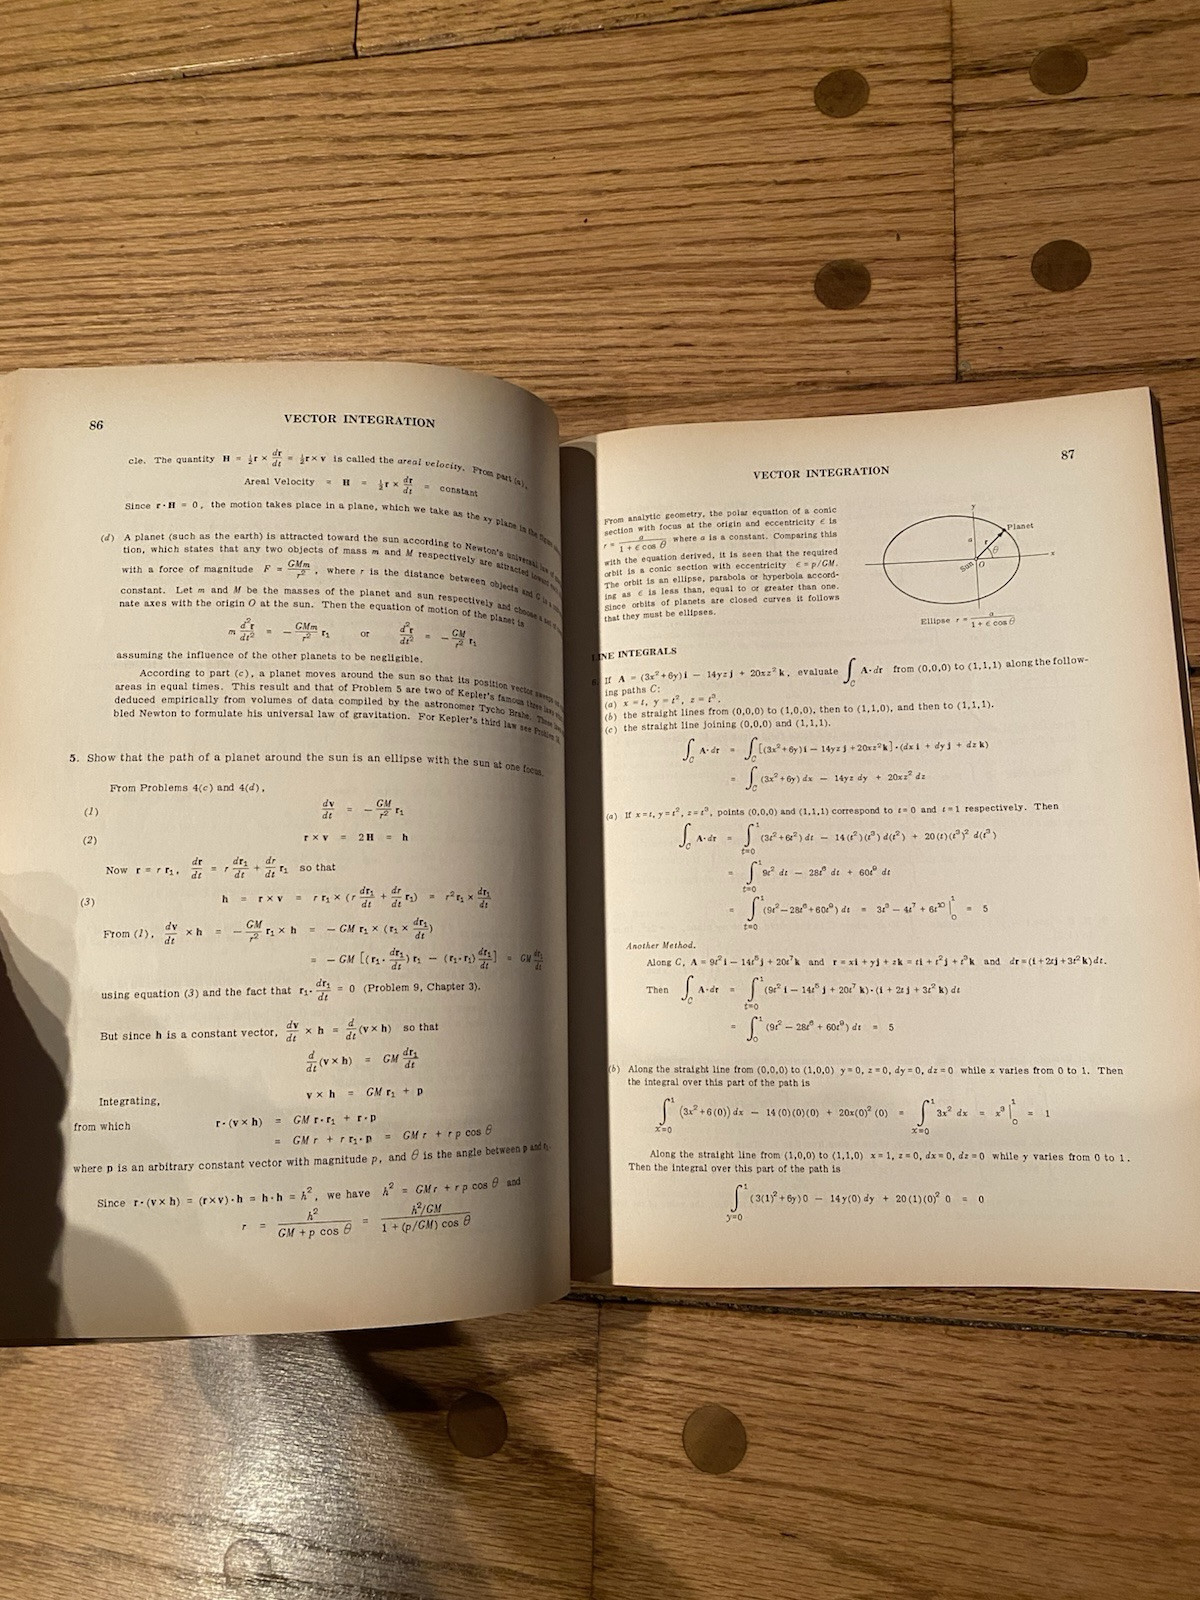 86
VECTOR INTEGRATION
cle. The quantity H = ½r × dr/dt = ½r × v is called the areal velocity. From part (a),
Areal Velocity = H = ½r × dr/dt = constant
Since r·H = 0, the motion takes place in a plane, which we take as the xy plane in the
(d) A planet (such as the earth) is attracted toward the sun according to Newton's universal law of
tion, which states that any two objects of mass m and M respectively are attracted toward
with a force of magnitude F = GMm/r², where r is the distance between objects and G is a
constant. Let m and M be the masses of the planet and sun respectively and choose a set of
nate axes with the origin O at the sun. Then the equation of motion of the planet is
m d²r/dt² = − GMm/r² r₁ or d²r/dt² = − GM/r² r₁
assuming the influence of the other planets to be negligible.
According to part (c), a planet moves around the sun so that its position vector sweeps out
areas in equal times. This result and that of Problem 5 are two of Kepler's famous three laws
deduced empirically from volumes of data compiled by the astronomer Tycho Brahe. These
bled Newton to formulate his universal law of gravitation. For Kepler's third law see Problem
5. Show that the path of a planet around the sun is an ellipse with the sun at one focus.
From Problems 4(c) and 4(d),
(1) dv/dt = − GM/r² r₁
(2) r × v = 2H = h
Now r = r r₁, dr/dt = r dr₁/dt + dr/dt r₁ so that
(3) h = r × v = r r₁ × (r dr₁/dt + dr/dt r₁) = r² r₁ × dr₁/dt
From (1), dv/dt × h = − GM/r² r₁ × h = − GM r₁ × (r₁ × dr₁/dt)
= − GM [(r₁· dr₁/dt) r₁ − (r₁·r₁) dr₁/dt] = GM dr₁/dt
using equation (3) and the fact that r₁· dr₁/dt = 0 (Problem 9, Chapter 3).
But since h is a constant vector, dv/dt × h = d/dt (v × h) so that
d/dt (v × h) = GM dr₁/dt
Integrating, v × h = GM r₁ + p
from which r·(v × h) = GM r·r₁ + r·p
= GM r + r r₁·p = GM r + r p cos θ
where p is an arbitrary constant vector with magnitude p, and θ is the angle between p and r₁.
Since r·(v × h) = (r×v)·h = h·h = h², we have h² = GMr + r p cos θ and
r = h²/(GM + p cos θ) = (h²/GM)/(1 + (p/GM) cos θ)
VECTOR INTEGRATION
87
From analytic geometry, the polar equation of a conic
section with focus at the origin and eccentricity ε is
r = a/(1 + ε cos θ) where a is a constant. Comparing this
with the equation derived, it is seen that the required
orbit is a conic section with eccentricity ε = p/GM.
The orbit is an ellipse, parabola or hyperbola accord-
ing as ε is less than, equal to or greater than one.
Since orbits of planets are closed curves it follows
that they must be ellipses.
y
Planet
a
r
θ
x
Sun
O
Ellipse r = a/(1 + ε cos θ)
LINE INTEGRALS
6. If A = (3x² + 6y) i − 14yz j + 20xz² k, evaluate ∫_C A·dr from (0,0,0) to (1,1,1) along the follow-
ing paths C:
(a) x = t, y = t², z = t³.
(b) the straight lines from (0,0,0) to (1,0,0), then to (1,1,0), and then to (1,1,1).
(c) the straight line joining (0,0,0) and (1,1,1).
∫_C A·dr = ∫_C [(3x² + 6y) i − 14yz j + 20xz² k]·(dx i + dy j + dz k)
= ∫_C (3x² + 6y) dx − 14yz dy + 20xz² dz
(a) If x = t, y = t², z = t³, points (0,0,0) and (1,1,1) correspond to t = 0 and t = 1 respectively. Then
∫_C A·dr = ∫_{t=0}^1 (3t² + 6t²) dt − 14(t²)(t³) d(t²) + 20(t)(t³)² d(t³)
= ∫_{t=0}^1 9t² dt − 28t⁶ dt + 60t⁹ dt
= ∫_{t=0}^1 (9t² − 28t⁶ + 60t⁹) dt = 3t³ − 4t⁷ + 6t¹⁰ |_0^1 = 5
Another Method.
Along C, A = 9t² i − 14t⁵ j + 20t⁷ k and r = xi + yj + zk = ti + t² j + t³ k and dr = (i + 2tj + 3t² k) dt.
Then ∫_C A·dr = ∫_{t=0}^1 (9t² i − 14t⁵ j + 20t⁷ k)·(i + 2t j + 3t² k) dt
= ∫_0^1 (9t² − 28t⁶ + 60t⁹) dt = 5
(b) Along the straight line from (0,0,0) to (1,0,0) y = 0, z = 0, dy = 0, dz = 0 while x varies from 0 to 1. Then
the integral over this part of the path is
∫_{x=0}^1 (3x² + 6(0)) dx − 14(0)(0)(0) + 20x(0)² (0) = ∫_{x=0}^1 3x² dx = x³ |_0^1 = 1
Along the straight line from (1,0,0) to (1,1,0) x = 1, z = 0, dx = 0, dz = 0 while y varies from 0 to 1.
Then the integral over this part of the path is
∫_{y=0}^1 (3(1)² + 6y) 0 − 14y(0) dy + 20(1)(0)² 0 = 0